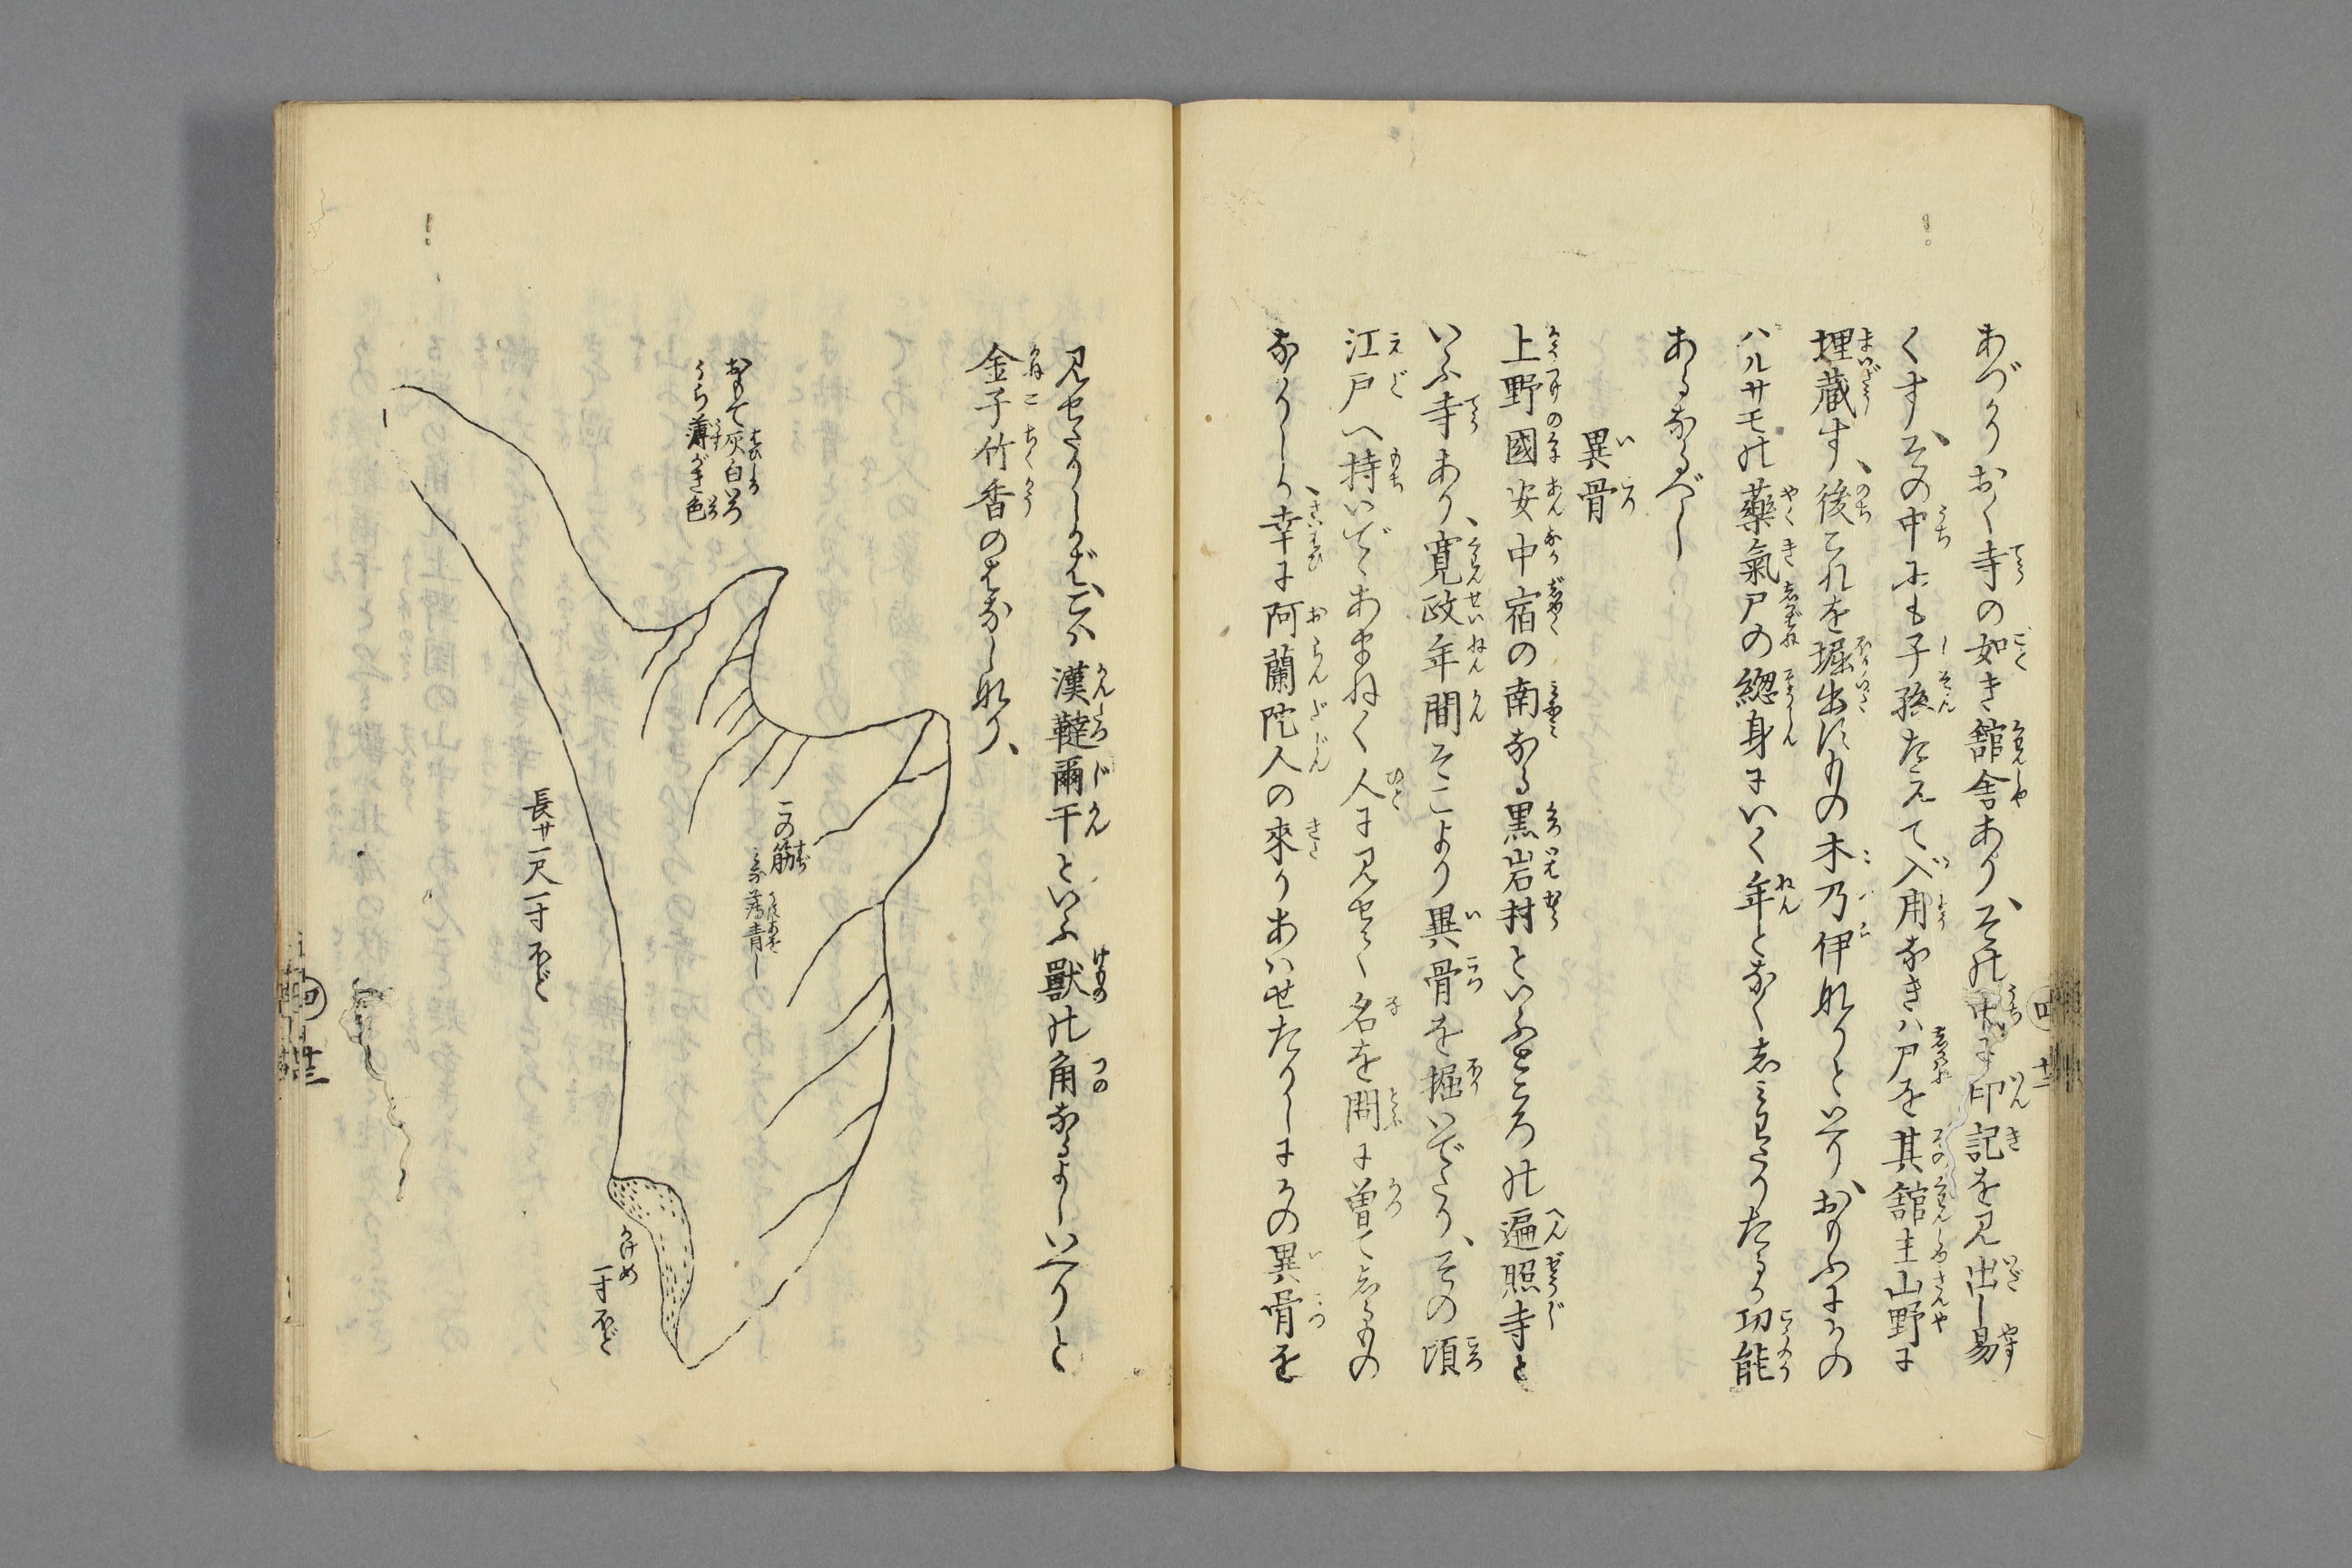 あづかりおく寺の如き舘舎あり、その中に印記を見出し易
くす、その中にも子孫たえて入用なきハ尸を其舘主山野に
埋蔵す、後これを堀出すもの木乃伊なりといへり、おもふにかの
バルサモの藥氣尸の緫身にいく年となくしミわたりたるか功能
あるなるべし
異骨
上野國安中宿の南なる黒岩村といふところの遍照寺と
いふ寺あり、寛政年間そこより異骨を掘いでたり、その頃
江戸へ持いでゝあまねく人に見せて名を問に曽てしるもの
なかりしか、幸に阿蘭陀人の來りあハせたりしにかの異骨を
見せたりしかば、こハ漢韃爾干といふ獸の角なるよしいへりと
金子竹香のはなしなり、
おもて灰白いろ
うら薄かき色
この筋
ミな薄青し
長サ一尺一寸ほど
かけめ
一寸ほど